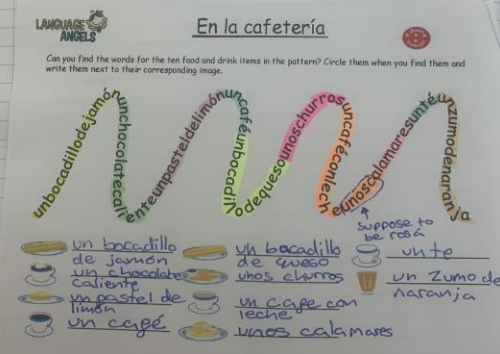 LANGUAGE
ANGELS
En la cafetería
Can you find the words for the ten food and drink items in the pattern? Circle them when you find them and
write them next to their corresponding image.
unbocadillodejamónunchocolatecalienteunpasteldelimónuncaféunbocadillodequesounoschurrosuncaféconlecheunoscalamaresuntéunzumodenaranja
suppose to
be rosá
un bocadillo
de jamón
un chocolate
caliente
un pastel de
limón
un cagé
un bocadillo
de queso
unos churros
un cage con
leche
unos calamares
un te
un zumo de
naranja